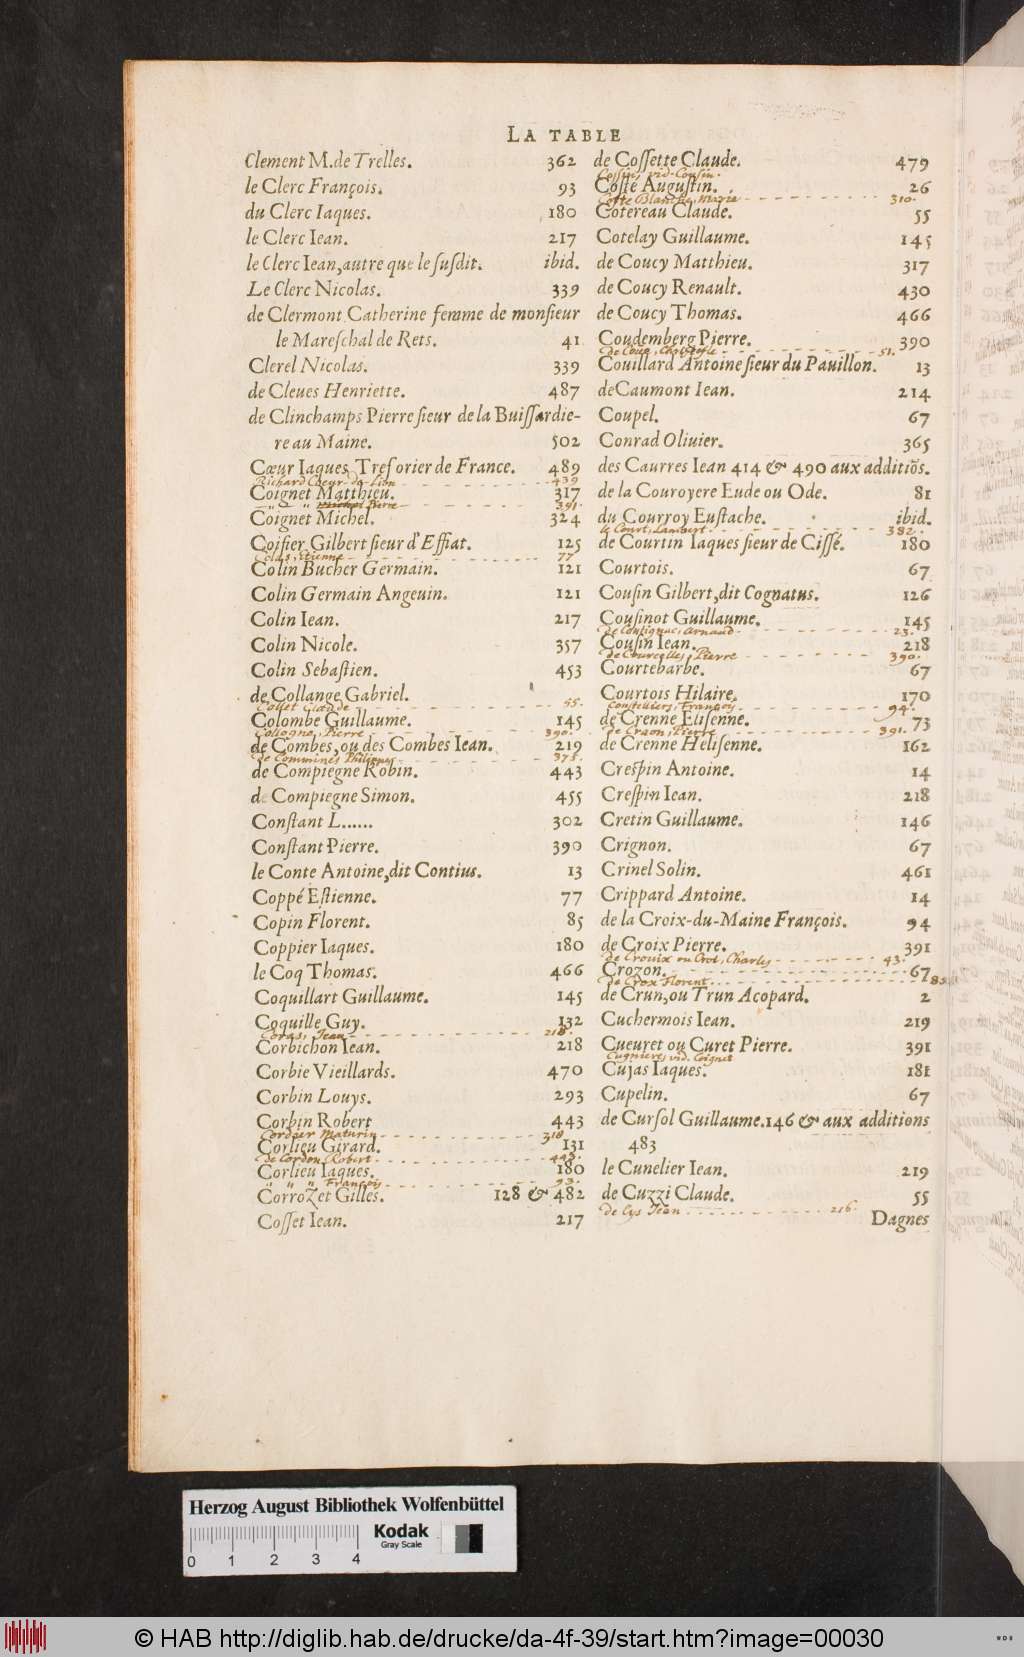 LA TABLE
Clement M. de Trelles. 362
le Clerc François. 93
du Clerc Iaques. 180
le Clerc Iean. 217
le Clerc Iean, autre que le ſuſdit. ibid.
Le Clerc Nicolas. 339
de Clermont Catherine femme de monſieur
le Mareſchal de Rets. 41
Clerel Nicolas. 339
de Cleues Henriette. 487
de Clinchamps Pierre ſieur de la Buiſſardie-
re au Maine. 502
Cœur Iaques, Treſorier de France. 489
Richard Coeur-de-Lion 439
Coignet Matthieu. 317
" " Michel Pierre 391.
Coignet Michel. 324
Coifier Gilbert ſieur d'Effiat. 125
Colas, Etienne 77
Colin Bucher Germain. 121
Colin Germain Angeuin. 121
Colin Iean. 217
Colin Nicole. 357
Colin Sebaſtien. 453
de Collange Gabriel.
Collet Claude 55.
Colombe Guillaume. 145
Cologne, Pierre 390.
de Combes, ou des Combes Iean. 219
de Commines Philippes 375.
de Compiegne Robin. 443
de Compiegne Simon. 455
Conſtant L...... 302
Conſtant Pierre. 390
le Conte Antoine, dit Contius. 13
Coppé Eſtienne. 77
Copin Florent. 85
Coppier Iaques. 180
le Coq Thomas. 466
Coquillart Guillaume. 145
Coquille Guy. 132
Coras, Jean 218.
Corbichon Iean. 218
Corbie Vieillards. 470
Corbin Louys. 293
Corbin Robert 443
Cordier Maturin 318
Corlieu Girard. 131
de Cordon Robert 443.
Corlieu Iaques. 180
" " " François 93.
Corrozet Gilles. 128 & 482
Coſſet Iean. 217
de Coſſette Claude. 479
Coſſin, vid. Couſin.
Coſte Auguſtin. 26
Coſte Blanche, Marie 310.
Cotereau Claude. 55
Cotelay Guillaume. 145
de Coucy Matthieu. 317
de Coucy Renault. 430
de Coucy Thomas. 466
Coudemberg Pierre. 390
de Coue, Chriſtofle 51.
Couillard Antoine ſieur du Pauillon. 13
de Caumont Iean. 214
Coupel. 67
Conrad Oliuier. 365
des Caurres Iean 414 & 490 aux additiõs.
de la Couroyere Eude ou Ode. 81
du Courroy Euſtache. ibid.
le Court, Lambert 382.
de Courtin Iaques ſieur de Ciſſé. 180
Courtois. 67
Couſin Gilbert, dit Cognatus. 126
Couſinot Guillaume. 145
Arnaud 23.
Couſin Iean. 218
de Courcelles, Pierre 390.
Courtebarbe. 67
Courtois Hilaire. 170
Couſtelliers, François 94.
de Crenne Eliſenne. 73
de Craon, Pierre 391.
de Crenne Heliſenne. 162
Creſpin Antoine. 14
Creſpin Iean. 218
Cretin Guillaume. 146
Crignon. 67
Crinel Solin. 461
Crippard Antoine. 14
de la Croix-du-Maine François. 94
de Croix Pierre. 391
de Crouix ou Croi, Charles 43
Crozon. 67
de Crox Florent 85
de Crun, ou Trun Acopard. 2
Cuchermois Iean. 219
Cueuret ou Curet Pierre. 391
Cugnieres, vid. Coignet
Cujas Iaques. 181
Cupelin. 67
de Curſol Guillaume. 146 & aux additions
483
le Cunelier Iean. 219
de Cuzzi Claude. 55
de Cys Jean 216.
Dagnes
Herzog August Bibliothek Wolfenbüttel
0 1 2 3 4
Kodak
Gray Scale
© HAB http://diglib.hab.de/drucke/da-4f-39/start.htm?image=00030